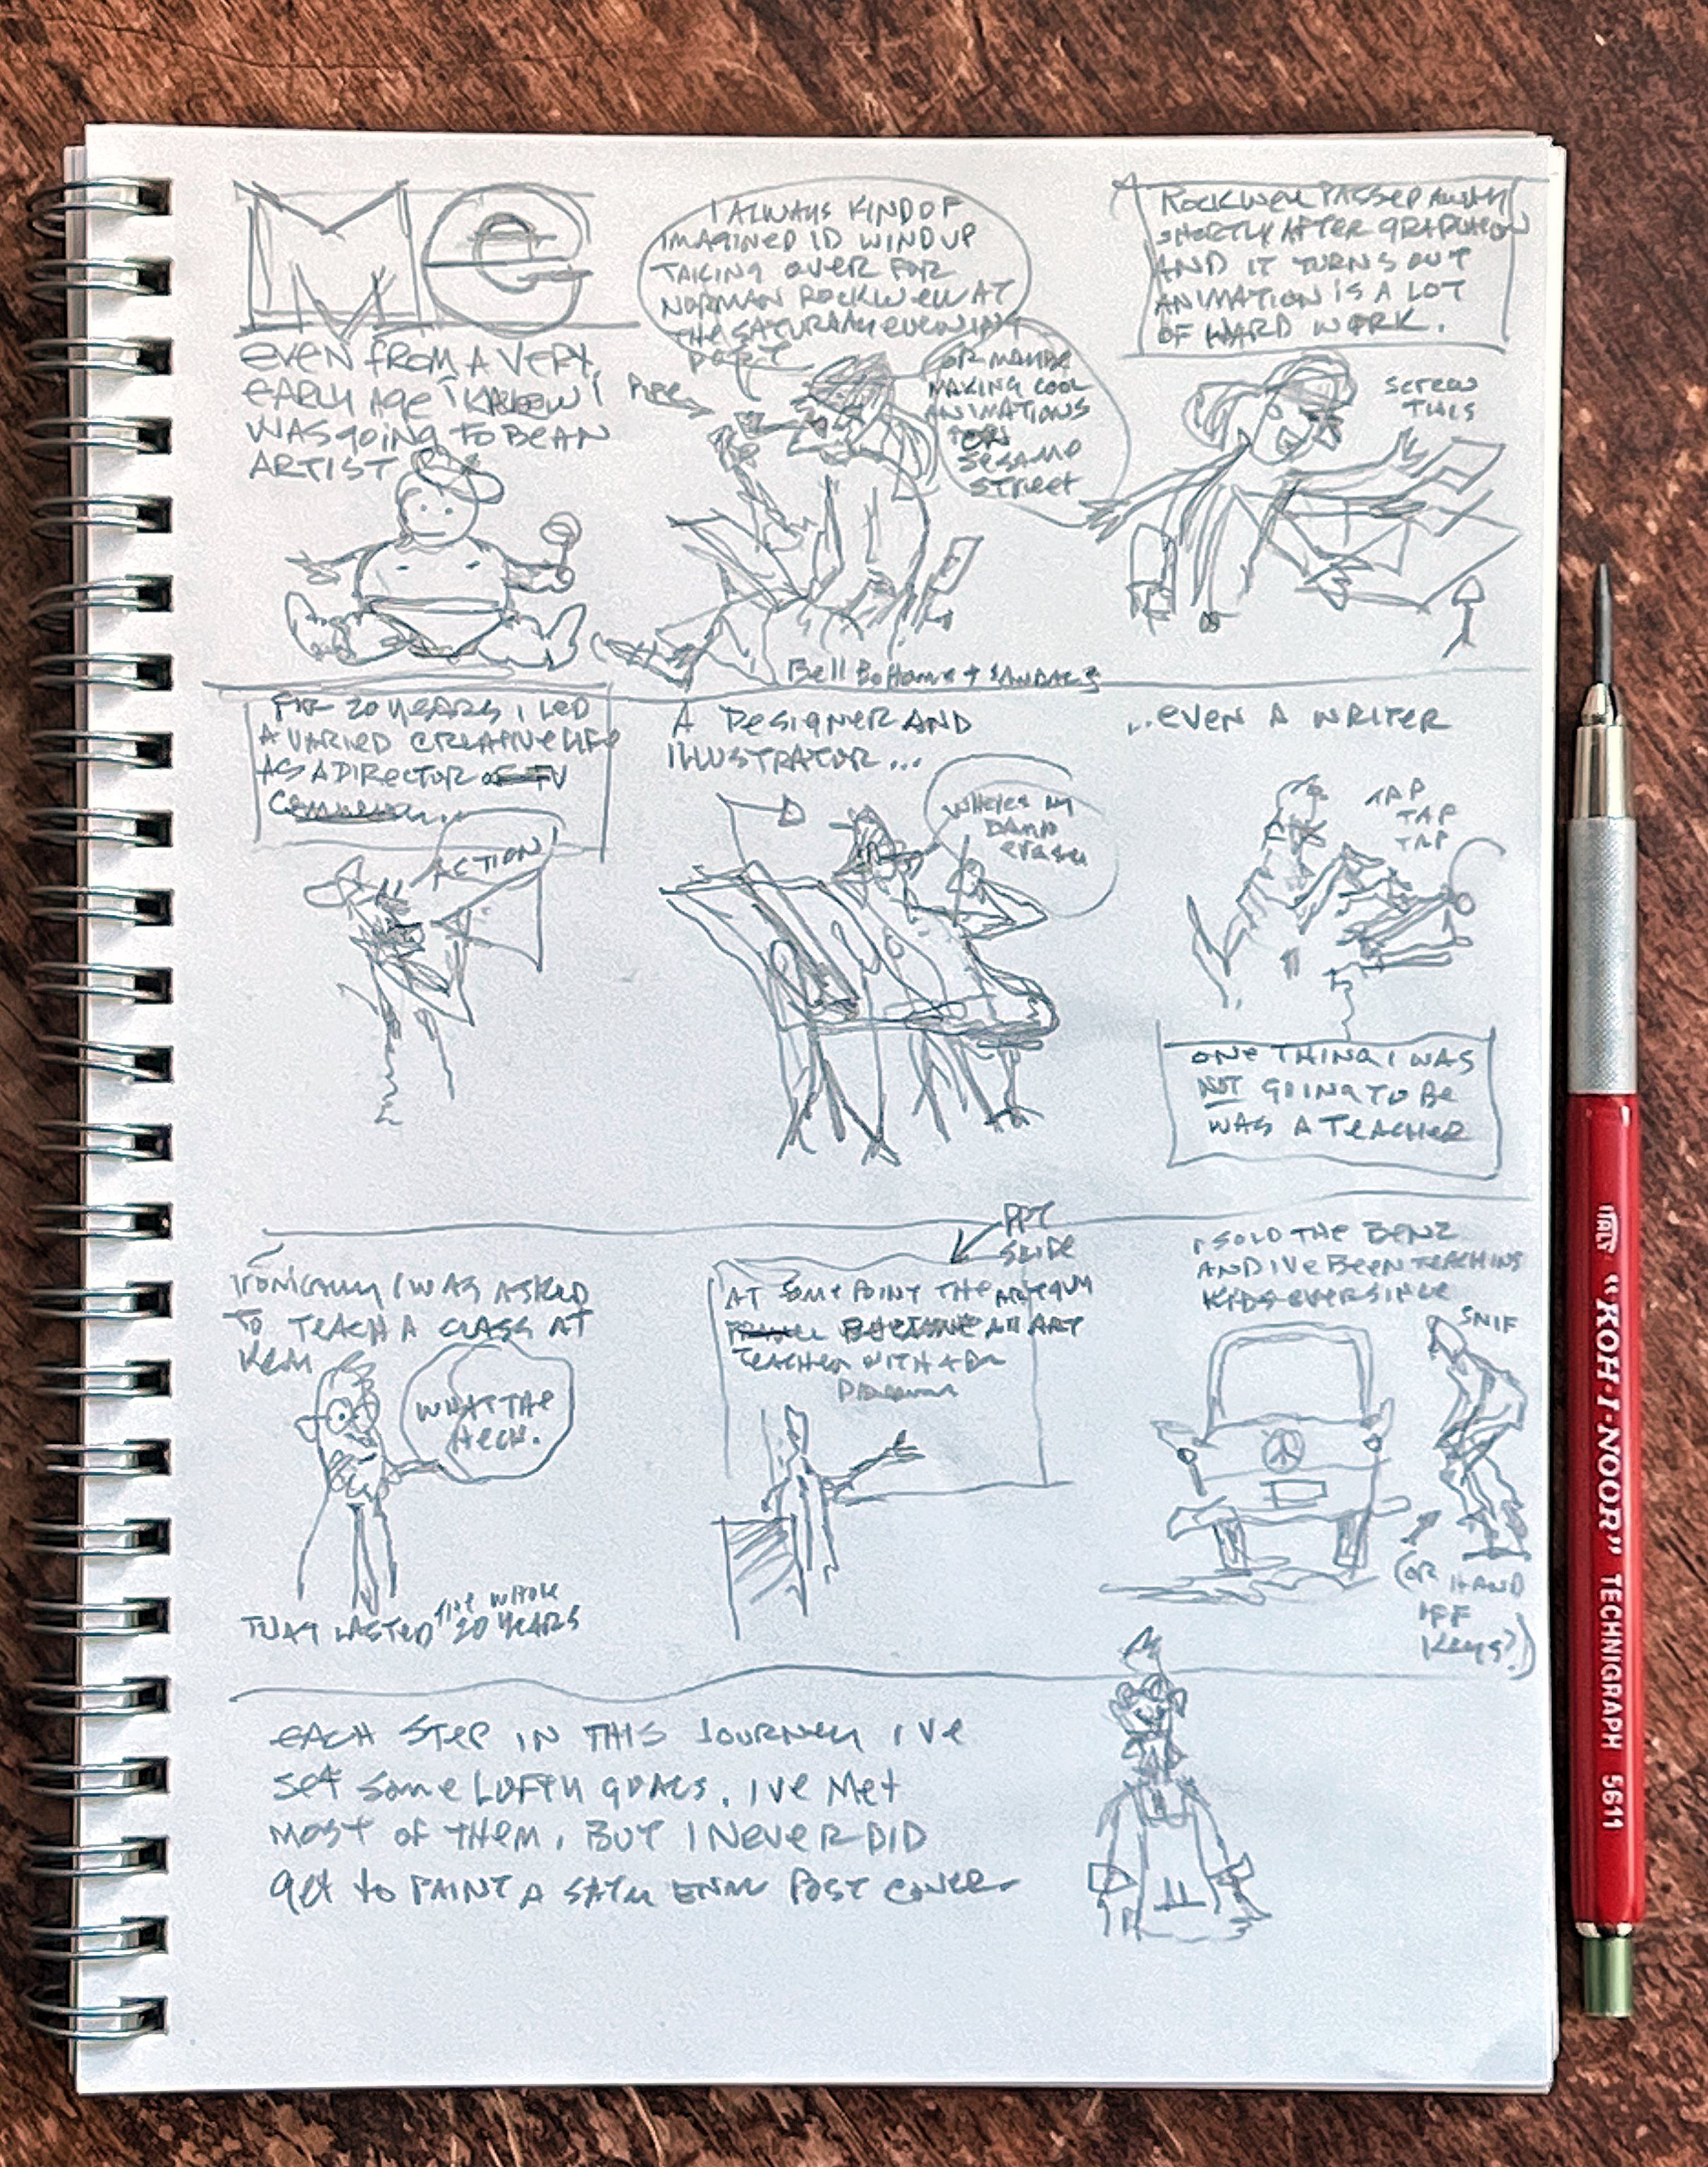 ME
EVEN FROM A VERY
EARLY AGE I KNEW I
WAS GOING TO BE AN
ARTIST
I ALWAYS KIND OF
IMAGINED ID WIND UP
TAKING OVER FOR
NORMAN ROCKWELL AT
THE SATURDAY EVENING
POST
PIPE
OR MAYBE
MAKING COOL
ANIMATIONS
ON
SESAME
STREET
Bell Bottoms + SANDALS
ROCKWELL PASSED AWAY
SHORTLY AFTER GRADUATION
AND IT TURNS OUT
ANIMATION IS A LOT
OF HARD WORK.
SCREW
THIS
FOR 20 YEARS I LED
A VARIED CREATIVE LIFE
AS A DIRECTOR OF TV
ACTION
A DESIGNER AND
ILLUSTRATOR...
WHERES MY
DAMN
ERASER
...EVEN A WRITER
TAP
TAP
TAP
ONE THING I WAS
NOT GOING TO BE
WAS A TEACHER
IRONICALLY I WAS ASKED
TO TEACH A CLASS AT
WHAT THE
HECK.
THAT LASTED THE WHOLE
20 YEARS
PPT
SLIDE
AT SOME POINT THE
BECAME AN ART
TEACHER WITH A
I SOLD THE BENZ
AND I'VE BEEN TEACHING
KIDS EVER SINCE
SNIF
(OR HAND
OFF
KEYS?)
EACH STEP IN THIS JOURNEY I'VE
SET SOME LOFTY GOALS. I'VE MET
MOST OF THEM, BUT I NEVER DID
GET TO PAINT A SATU EVNG POST COVER.
ITALY "KOH-I-NOOR" TECHNIGRAPH 5611